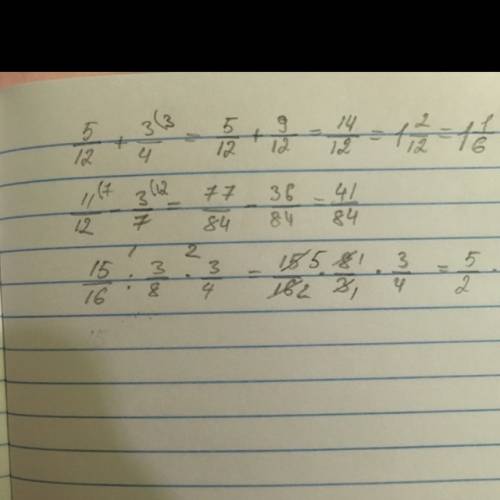 5/12 + 3/4 (3 = 5/12 + 9/12 = 14/12 = 1 2/12 = 1 1/6
11/12 (7 - 3/7 (12 = 77/84 - 36/84 = 41/84
15/16 :¹ 3/8 ·² 3/4 = 15 5/16 2 · 8 1/3 1 · 3/4 = 5/2 ·